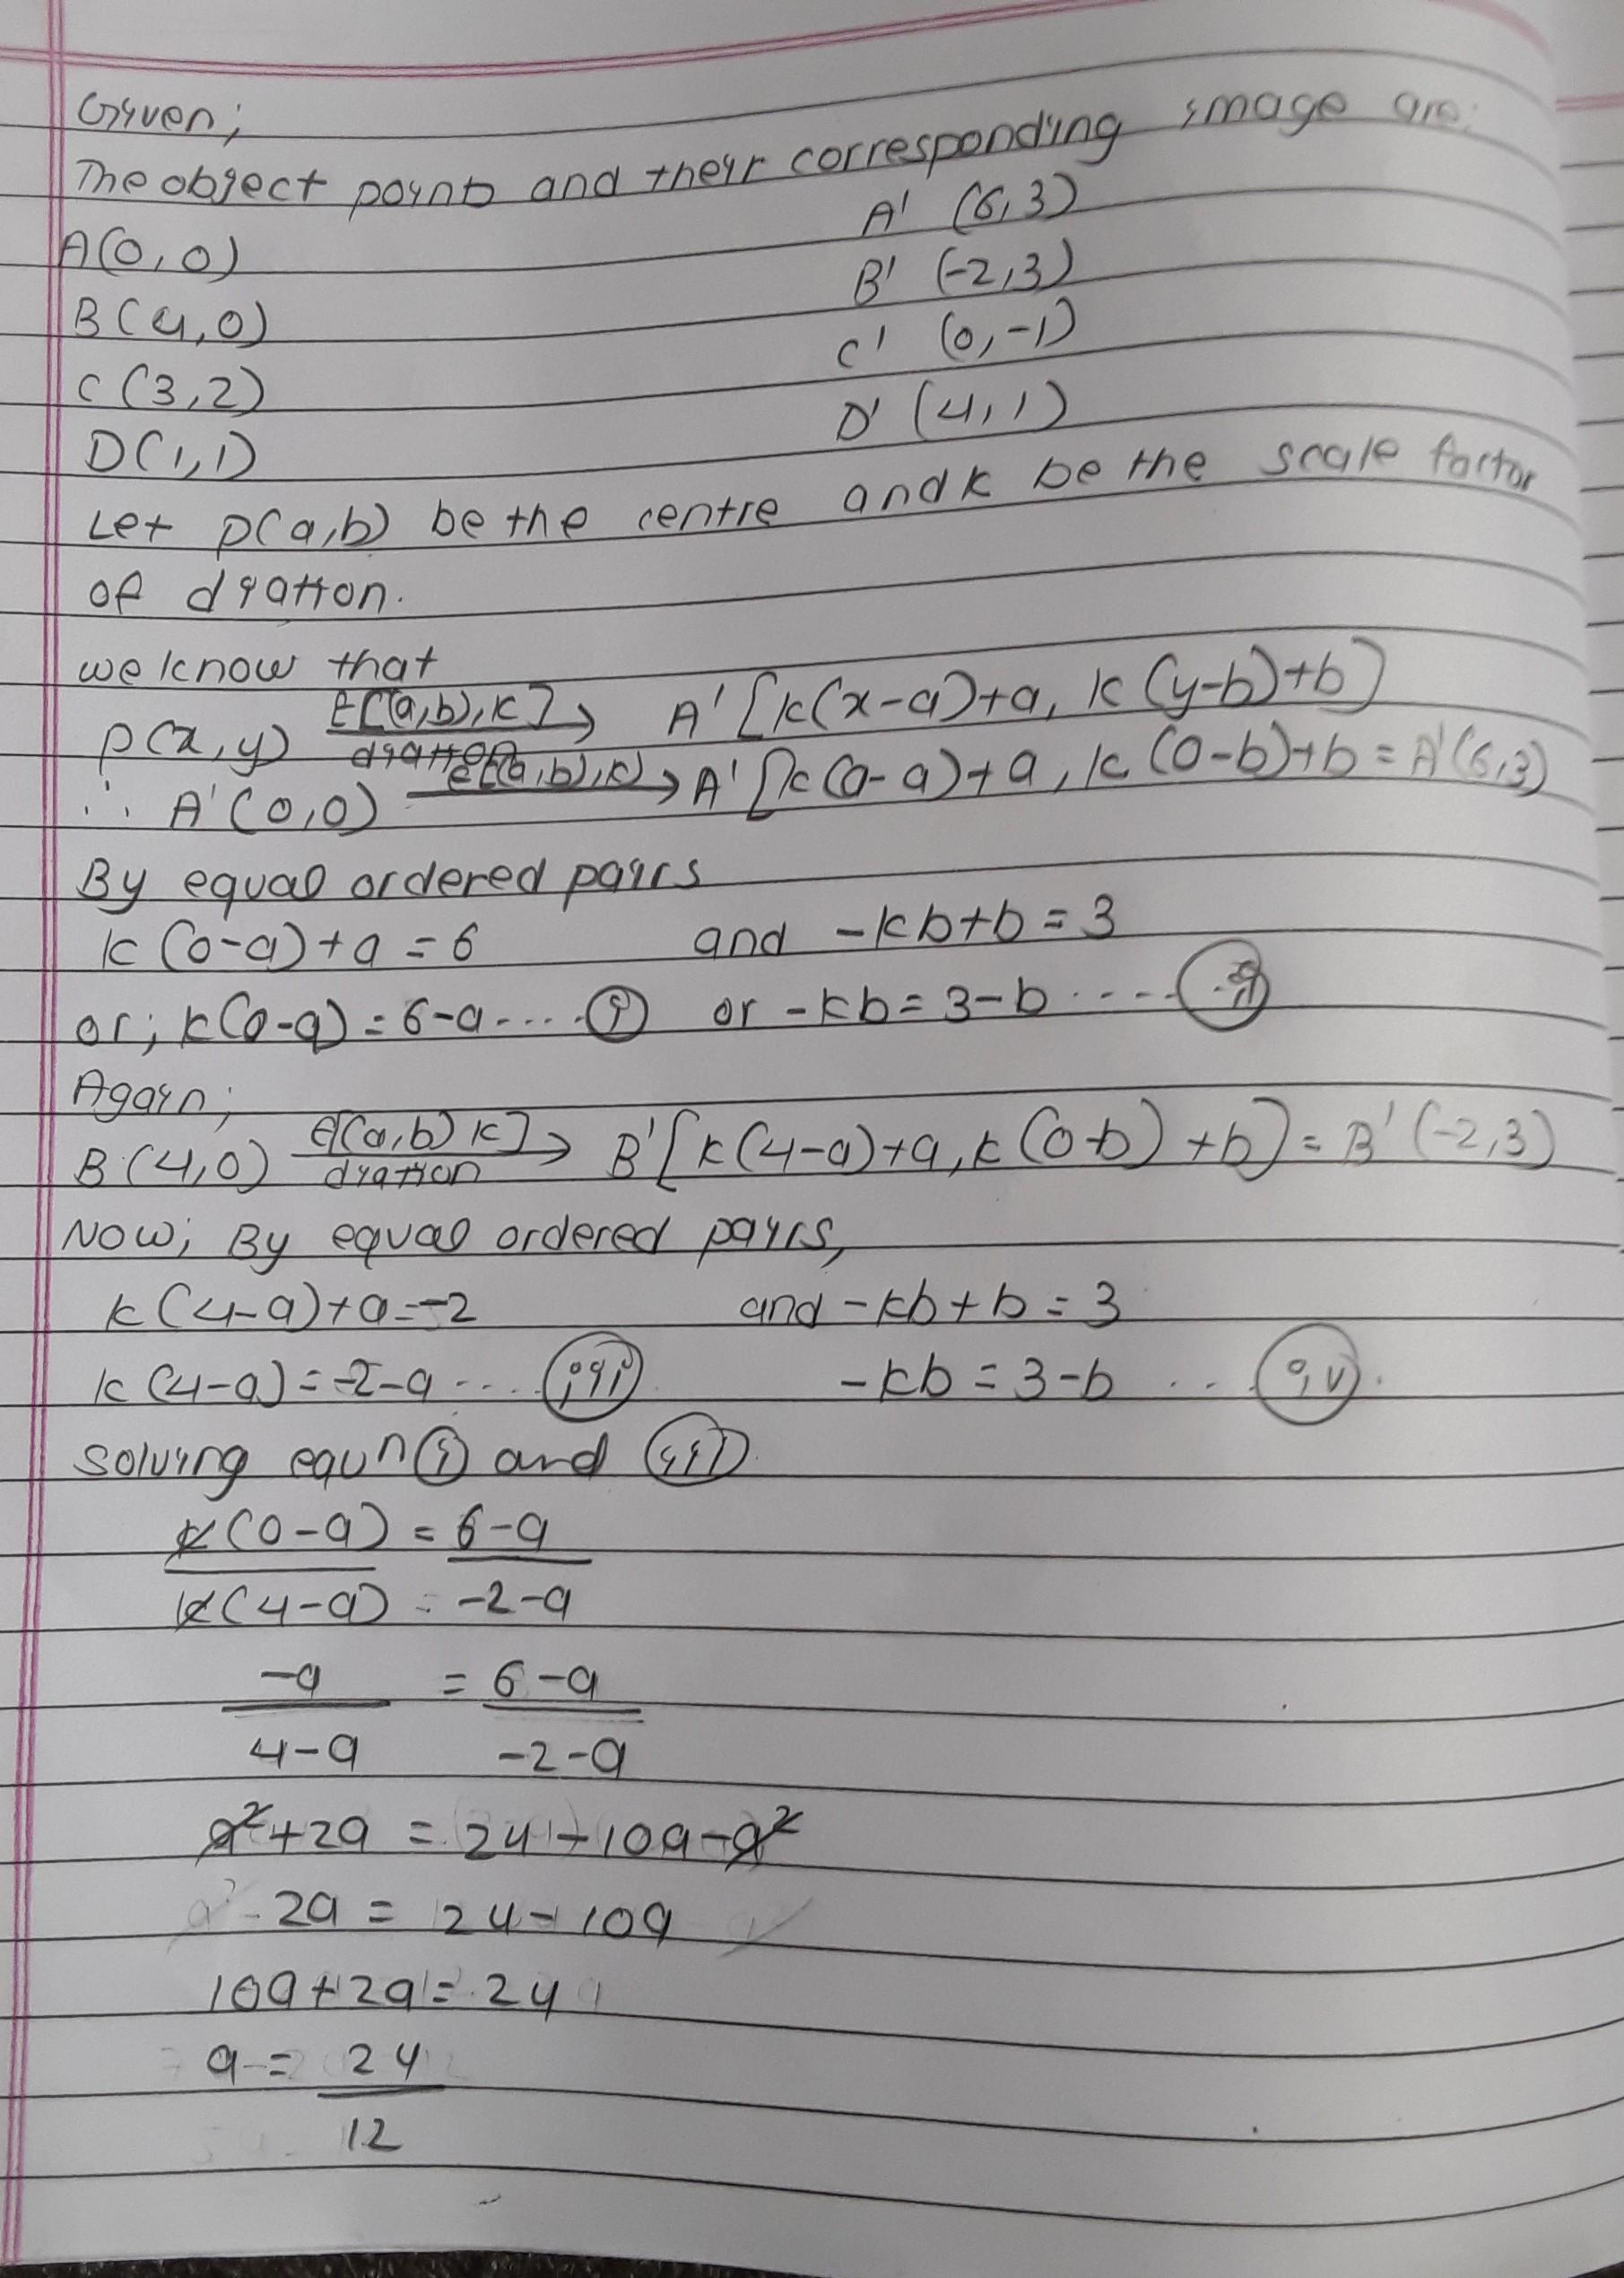 Given;
The object points and their corresponding image are:
A(0,0) A' (6,3)
B(4,0) B' (-2,3)
C(3,2) C' (0,-1)
D(1,1) D' (4,1)
Let P(a,b) be the centre and k be the scale factor
of diation.
we know that
P(x,y) E[(a,b),k] diation → A'[k(x-a)+a, k(y-b)+b]
∴ A'(0,0) e[(a,b),k) → A'[k(0-a)+a, k(0-b)+b = A'(6,3)
By equal ordered pairs
k(0-a)+a = 6 and -kb+b = 3
or; k(0-a) = 6-a .... (i) or -kb = 3-b .... (ii)
Again;
B(4,0) E[(a,b) k] diation → B'[k(4-a)+a, k(0-b)+b] = B'(-2,3)
Now; By equal ordered pairs,
k(4-a)+a=-2 and -kb+b = 3
k(4-a) = -2-a ... (iii) -kb = 3-b .. (iv).
solving equn (i) and (iii)
k(0-a) = 6-a
k(4-a) = -2-a
-a = 6-a
4-a -2-a
a²+2a = 24-10a-a²
2a = 24-10a
10a+2a = 24
a = 24
12